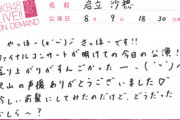 AKB48
LIVE!!
ON
DEMAND
名前 岩立 沙穂
公演日 8月9日 18時30分公演
やっほー(*ˊᵕˋ)♡さっほーです!!
ファイナルコンサートが明けての今日の公演!!
盛り上がりがすんごかったー(ˊᵕˋ)
沢山の声援ありがとうございました♡
珍しい前髪にしてみたのだけど、どうだった
かしら〜?